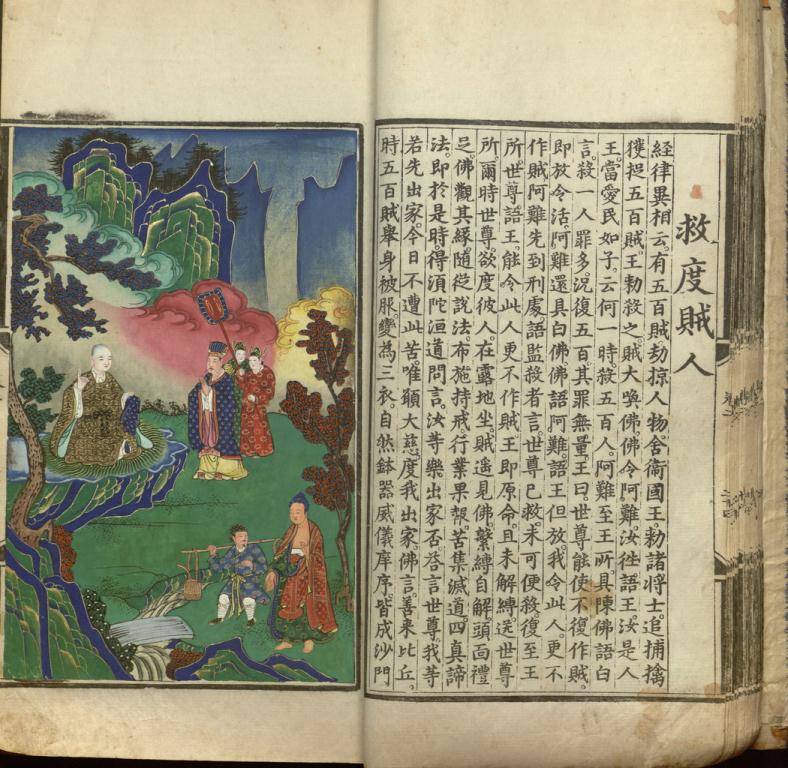 救度賊人
經律異相云。有五百賊。劫掠人物。舍衛國王。勅諸將士。追捕擒
獲捉五百賊。王勅殺之。賊大喚佛。佛令阿難。汝徃語王。汝是人
王。當愛民如子。云何一時殺五百人。阿難至王所。具陳佛語。白
言。殺一人罪多。況復五百。其罪無量。王曰。世尊能使不復作賊。
即放令活。阿難還具白佛。佛語阿難。語王但放。我令此人。更不
作賊。阿難先到刑處。語監殺者言。世尊已救。未可便殺。復至王
所。世尊語王。能令此人。更不作賊。王即原命。且未解縛。送世尊
所。爾時世尊。欲度彼人。在露地坐。賊遙見佛。繫縛自解。頭面禮
足。佛觀其緣。隨從說法。布施持戒。行業果報。苦集滅道。四真諦
法。即於是時。得湏陀洹道。問言。汝等樂出家否。荅言世尊。我等
若先出家。今日不遭此苦。唯願大慈。度我出家。佛言。善来比丘。
時五百賊。舉身被服。變為三衣。自然鉢器。威儀庠序。皆成沙門